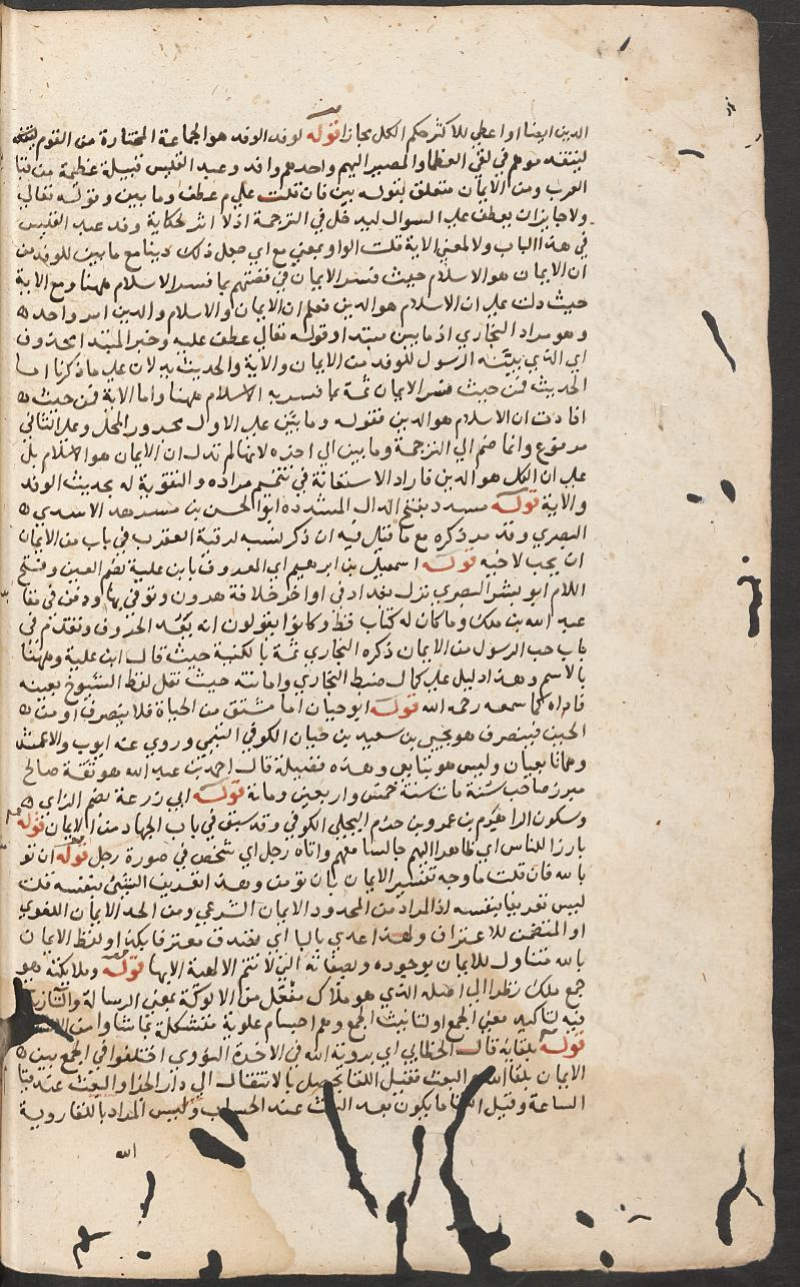 الدين ايضا او اعطي للاكثر حكم الكل مجازا قوله لوفد الوفد هو الجماعة المختارة من القوم
ليتقدموهم في لقي العظما والمصير اليهم واحدهم وافد وعبد القيس قبيلة عظيمة من قبا
العرب ومن الايمان متعلق بقوله بين فان قلت علي م عطف وما بين وقوله تعالي
ولا جايز ان يعطف علي السوال ليدخل في الترجمة اذ لا اثر لحكاية وفد عبد القيس
في هذا الباب ولا لمعني الاية قلت الواو بمعني مع اي جعل ذلك دينا مع ما بين للوفد من
ان الايمان هو الاسلام حيث فسر الايمان في قصتهم بما فسر الاسلام ههنا ومع الاية
حيث دلت علي ان الاسلام هو الدين فعلم ان الايمان والاسلام والدين امر واحد
وهو مراد البخاري اذ ما بين مبتدا وقوله تعالي عطف عليه وخبر المبتدا محذوف
اي الذي بينه الرسول للوفد من الايمان والاية والحديث يدلان علي ما ذكرنا اما
الحديث فمن حيث فسر الايمان ثمة بما فسر به الاسلام ههنا واما الاية فمن حيث
افادت ان الاسلام هو الدين فقوله وما بين علي الاول مجرور المحل وعلي الثاني
مرفوع وانما ضم الي الترجمة وما بين الي اخره لانها لم تدل ان الايمان هو الاسلام بل
علي ان الكل هو الدين فاراد الاستعانة في تتميم مراده والتقوية له بحديث الوفد
والاية قوله مسدد بفتح الدال المشددة ابو الحسن بن مسرهد الاسدي
البصري وقد مر ذكره مع ما قيل فيه ان ذكر نسبه لرقية العقرب في باب من الايمان
ان يحب لاخيه قوله اسمعيل بن ابرهيم اي المعروف بابن علية بضم العين وفتح
اللام ابو بشر البصري نزل بغداد في اواخر خلافة هرون وتوفي بها ودفن في مقا
عبد الله بن ملك وما كان له كتاب قط وكانوا يقولون انه يعد الحروف وتقدم في
باب حب الرسول من الايمان ذكره البخاري ثمة بالكنية حيث قال ابن علية وههنا
بالاسم وهذا دليل علي كمال ضبط البخاري وامانته حيث نقل لفظ الشيوخ بعينه
فاداه كما سمعه رحمه الله قوله ابو حيان اما مشتق من الحياة فلا ينصرف او من
الحين فينصرف هو يحيي بن سعيد بن حيان الكوفي التيمي وروي عنه ايوب والاعمش
وهما تابعيان وليس هو بتابعي وهذه فضيلة قال احمد بن عبد الله هو ثقة صالح
مبرز صاحب سنة مات سنة خمس واربعين ومائة قوله ابي زرعة بضم الزاي
وسكون الرا هرم بن عمرو بن جرير البجلي الكوفي وقد سبق في باب الجهاد من الايمان قوله
بارزا للناس اي ظاهرا اليهم جالسا معهم واتاه رجل اي شخص في صورة رجل قوله ان تو
بالله فان قلت ما وجه تفسير الايمان بان تومن وهذا تعريف الشيئ بنفسه قلت
ليس تعريفا بنفسه اذ المراد من المحدود الايمان الشرعي ومن الحد الايمان اللغوي
او المتضمن للاعتراف ولهذا عدي بالبا اي تصدق معترفا بكذا ولفظ الايمان
بالله متناول للايمان بوجوده وبصفاته التي لا تتم الالهية الا بها قوله وملائكته هو
جمع ملك نظرا الي اصله الذي هو ملاك مفعل من الالوكة بمعني الرسالة والتا زيدت
فيه لتاكيد معني الجمع او لتانيث الجمع وهم اجسام علوية متشكلة بما شاوا من
قوله بلقائه قال الخطابي اي بروية الله في الاخرة النووي اختلفوا في الجمع بين
الايمان بلقا الله والبعث فقيل اللقا يحصل بالانتقال الي دار الجزا والبعث عند قيا
الساعة وقيل اللقا ما يكون بعد البعث عند الحساب وليس المراد باللقا روية
الله